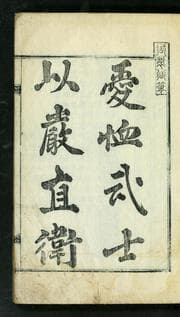 愛恤武士
以嚴直衛